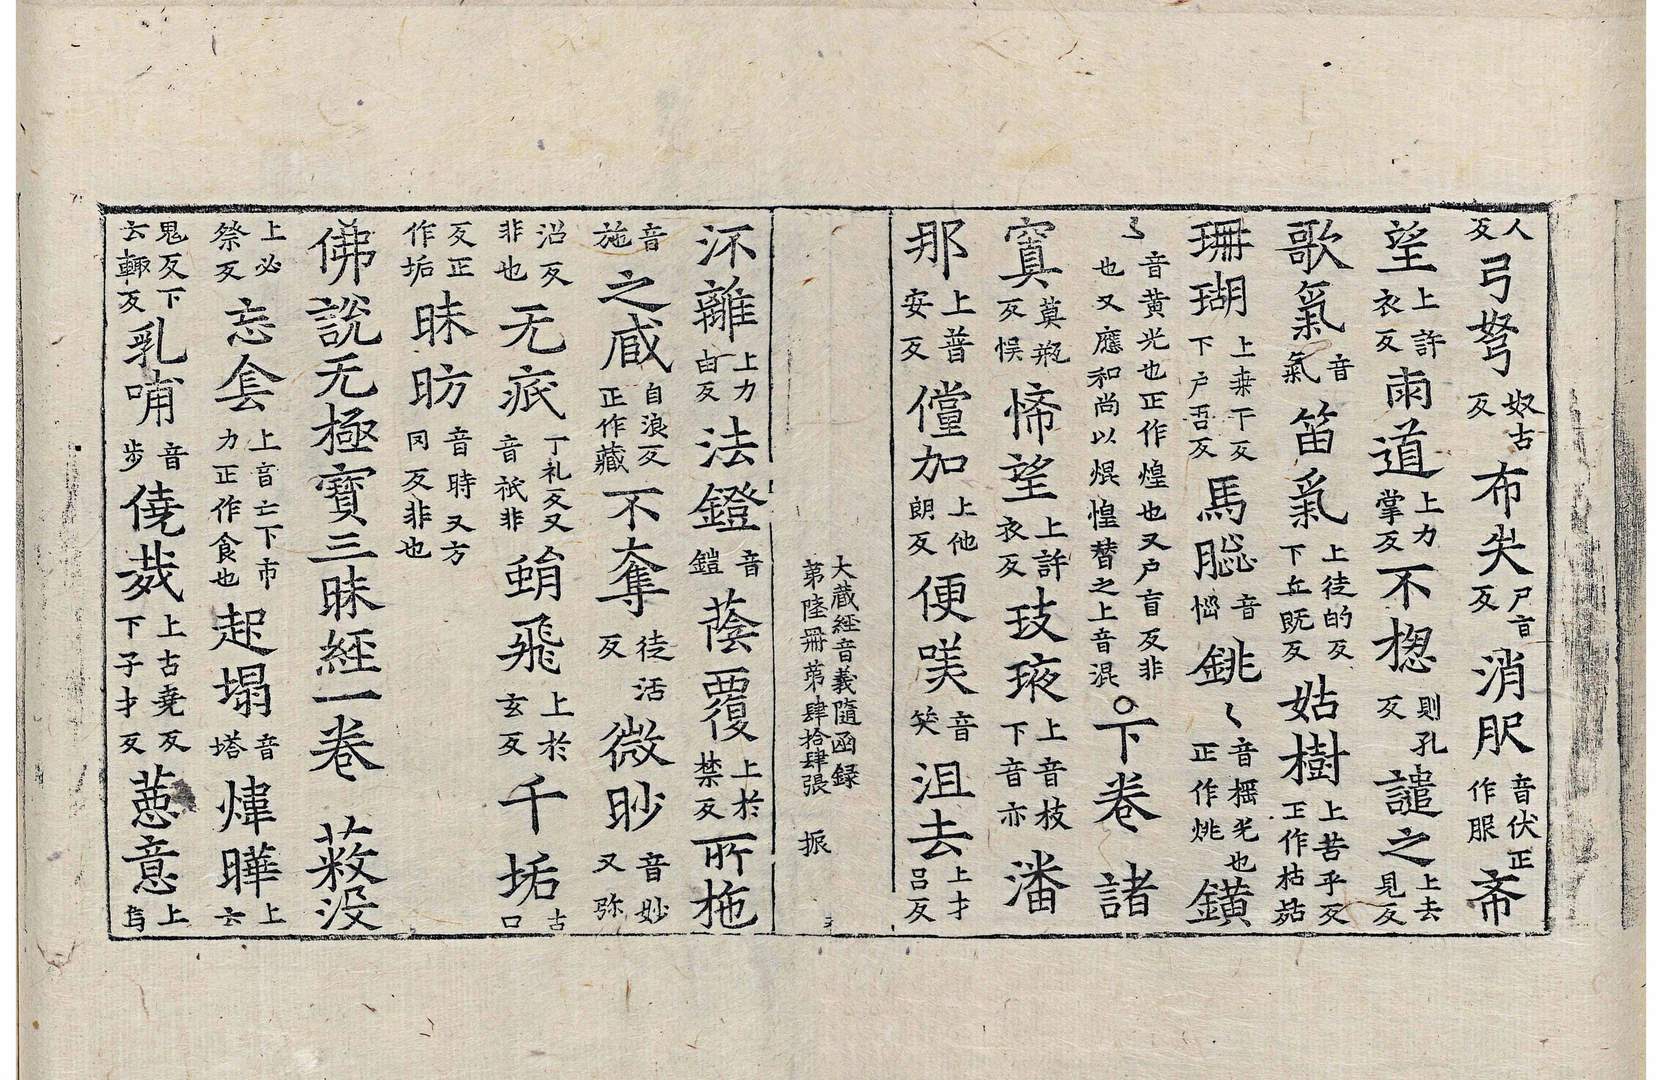 人反弓弩奴古反布矢尸盲反消𦚞音伏正作服斋
望上許衣反雨道上力掌反不揔則孔反譴之上去見反
歌氣音氣笛氣上徒的反下丘既反姑樹上苦乎反正作枯𣧑
珊瑚上桒干反下户吾反馬𦛁音惱銚〻音摇光也正作烑鐄
〻音黄光也正作煌也又户盲反非也又應和尚以焜惶替之上音混○下卷諸
寘莫瓶反悮悕望上許衣反㩼掖上音枝下音亦潘
那上普安反儻加上他朗反便㗛音笑沮去上才吕反
大藏經音義隨函録
第陸冊第肆拾肆張 振
㳅離上力由反法鐙音鎧蔭覆上於禁反所柂
音施之𢨋自浪反正作藏不奪徒活反微眇音妙又弥
沼反非也无疷丁礼反又音祇非蜎飛上於玄反千垢古口
反正作垢昧昉音時又方冈反非也
佛說无極寶三昧經一卷 蔽没
上必祭反忘食上音亡下市力正作食也起塌音塔煒曄上于
鬼反下云輒反乳哺音步僥烖上古堯反下子才反蒠意上